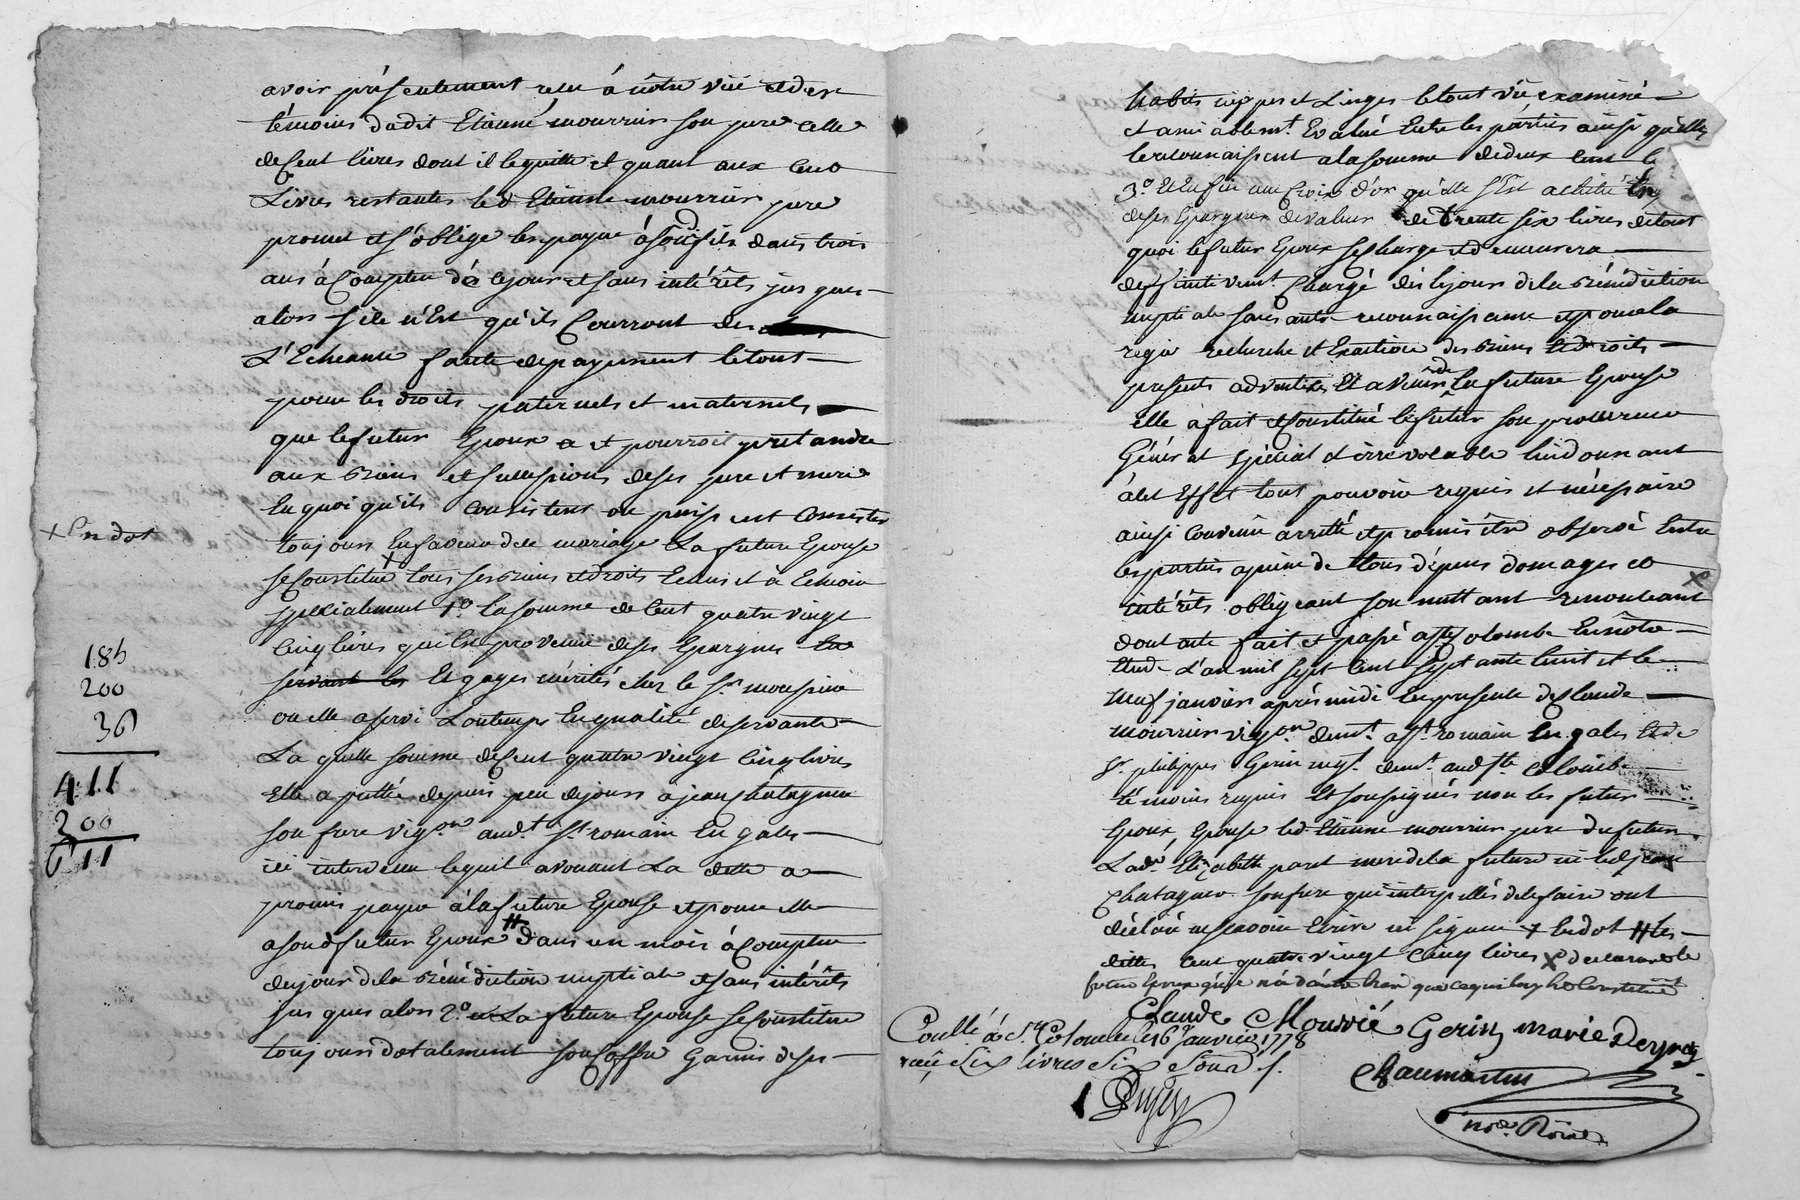 avoir présentement reçu à nôtre vüe et des
témoins dudit Etienne mourrier son pere celle
de Cent livres dont il le quitte et quant aux Cent
Livres restantes led Etienne mourrier pere
promet et s'oblige les payer à sond fils dans trois
ans à Compter dès ce jour et sans intérêts jusques
alors si ce n'Est qu'ils Courront dès
L'Echeance faute de payement le tout
pour les droits paternels et maternels
que le futur Epoux a et pourroit pretandre
aux Biens et successions de ses pere et mere
En quoi qu'ils Consistent ou puissent Consister
+ En dot
toujours En faveur de ce mariage La future Epouse
se Constitue + tous ses Biens et droits Echus et à Echoir
spécialement 1° La somme de Cent quatre vingt
Cinq livres qui Est provenue de ses Epargnes
servant les Et gages mérités chez le Sr
185
200
36
411
200
611
ou elle a servi Lontemps En qualité de servante
La quelle somme de Cent quatre vingt Cinq livres
Elle a prettée depuis peu de jours à jean Chatagner
son frere vigon aud.t St romain En gales
ici intervenu lequel avouant La dette a
promis payer à la future Epouse et pour elle
a sond futur Epoux # dans un mois à Compter
du jour de la Bénédiction nuptiale et sans intérêts
jus ques alors 2° La future Epouse se Constitue
toujours dotalement son Coffre Garnis de ses
habits nippes et Linges le tout vü examiné
et amiablem.t Evalué Entre les parties ainsi qu'elles
le reconnaissent a la somme de deux Cent
3° Et Enfin une Croix d'or qu'elle s'Est achetté
de ses Epargnes de valeur de trente six livres de tout
quoi le futur Epoux se charge et demeurera
deffinitivem.t Chargé dès le jour de la Bénédiction
nuptiale sans autre reconnaissance et pour la
regie recherche et Exaction des Biens et droits
presents adventifs Et a venir de La future Epouse
Elle a fait et Constitué le futur son procureur
Général spécial et irrévocable lui donnant
à cet Effet tout pouvoir requis et nécessaire
ainsi Convenu arretté et promis être observé Entre
les parties a peine de tous dépens domages et
intérêts obligeant soumettant renonceant X
dont acte fait et passé a Ste Colombe En nôtre
Etude L'an mil sept Cent septante huit et le
neuf janvier après midi En presence de Claude
mourrier vigon demt a St romain En gales Et de
Sr philippes Gerin negt demt aud Ste Colombe
témoins requis Et soussignés non les futur
Epoux, Epouse led Etienne mourrier pere du futur
Lade Elizabeth mere de la future ni led jean
Chatagner son frere qui interpellés de le faire ont
déclaré ne scavoir Ecrire ni signer + En dot # les
dittes cent quatre vingt Cinq livres X declarant le
futur Epoux qu'il n'a d'autre bien que ce qui luy est Constitué
Claude Mourrié Gerin
Conllé à Ste Colombe le 16 Janvier 1778
reçu Six livres Six Sous f.
Chaumartin
nore Roial